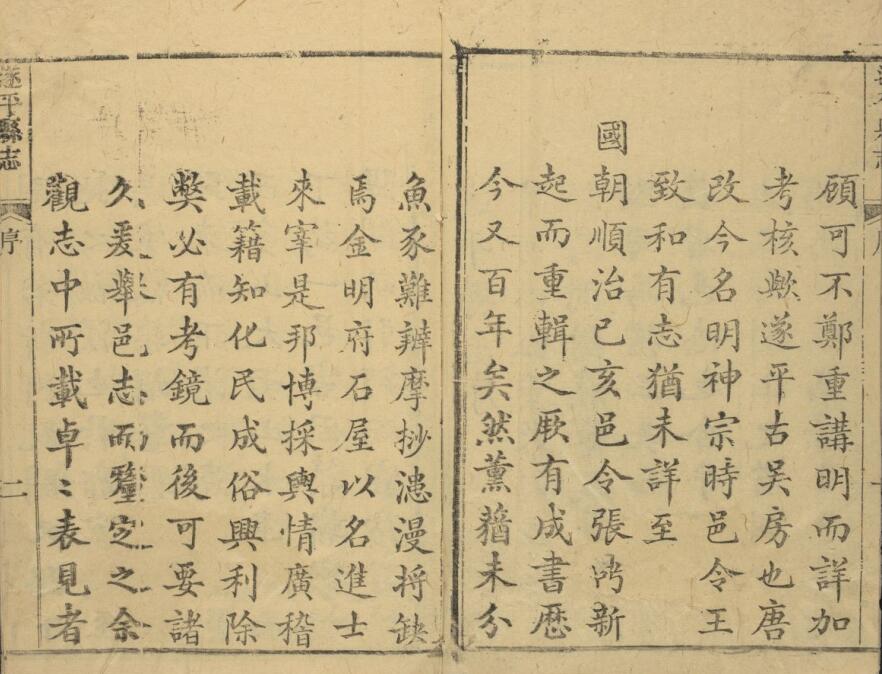 顧可不鄭重講明而詳加
考核歟遂平古吴房也唐
改今名明神宗時邑令王
致和有志猶未詳至
國朝順治已亥邑令張鼑新
起而重輯之厥有成書厯
今又百年矣然薰蕕未分
魚豕難辨摩挱漶漫将缺
焉金明府石屋以名進士
來宰是邦博採輿情廣稽
載籍知化民成俗興利除
弊必有考鏡而後可要諸
久爰舉邑志而釐定之余
觀志中所載卓〻表見者
遂平縣志
序
二